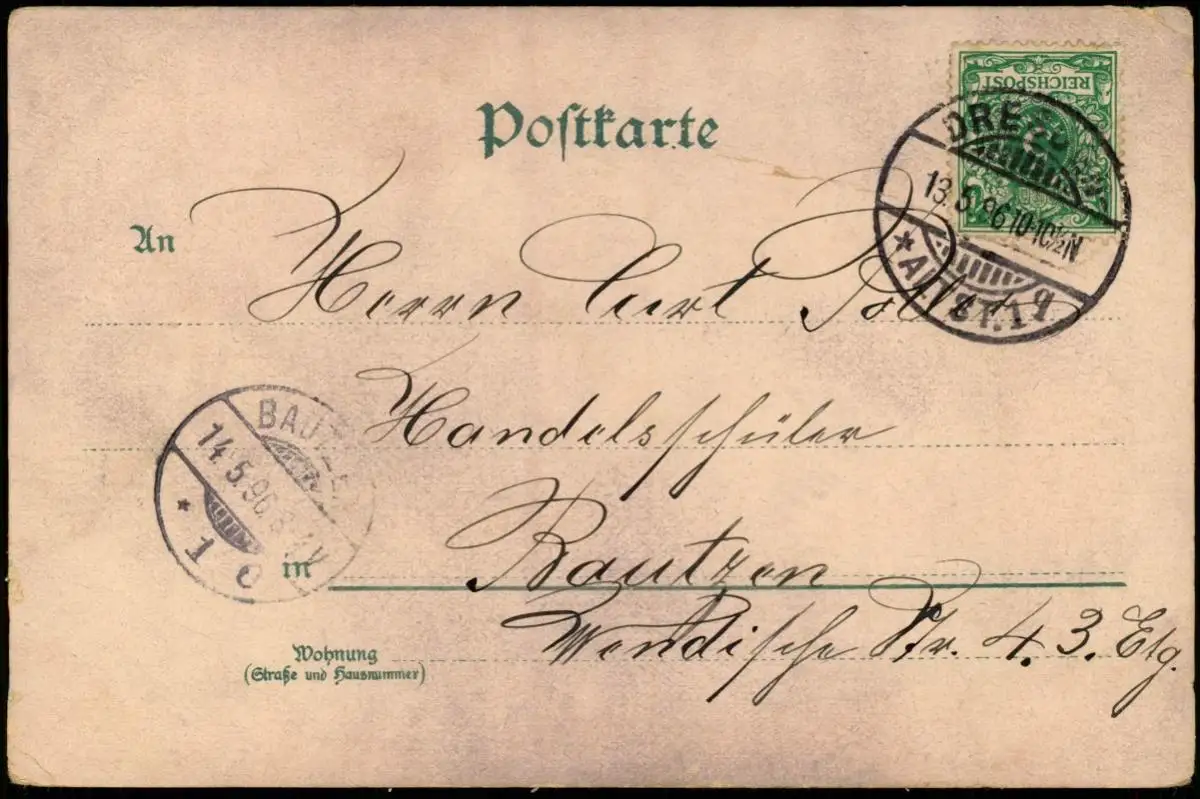 Postkarte
REICHSPOST
DRESDEN
13.5.96.10-10½N
*ALTST.1 g
An Herrn Curt
Handelsschüler
BAUTZEN
14.5.96.
* 1 c
in Bautzen
Wendische Str. 4. 3. Etg.
Wohnung
(Straße und Hausnummer)